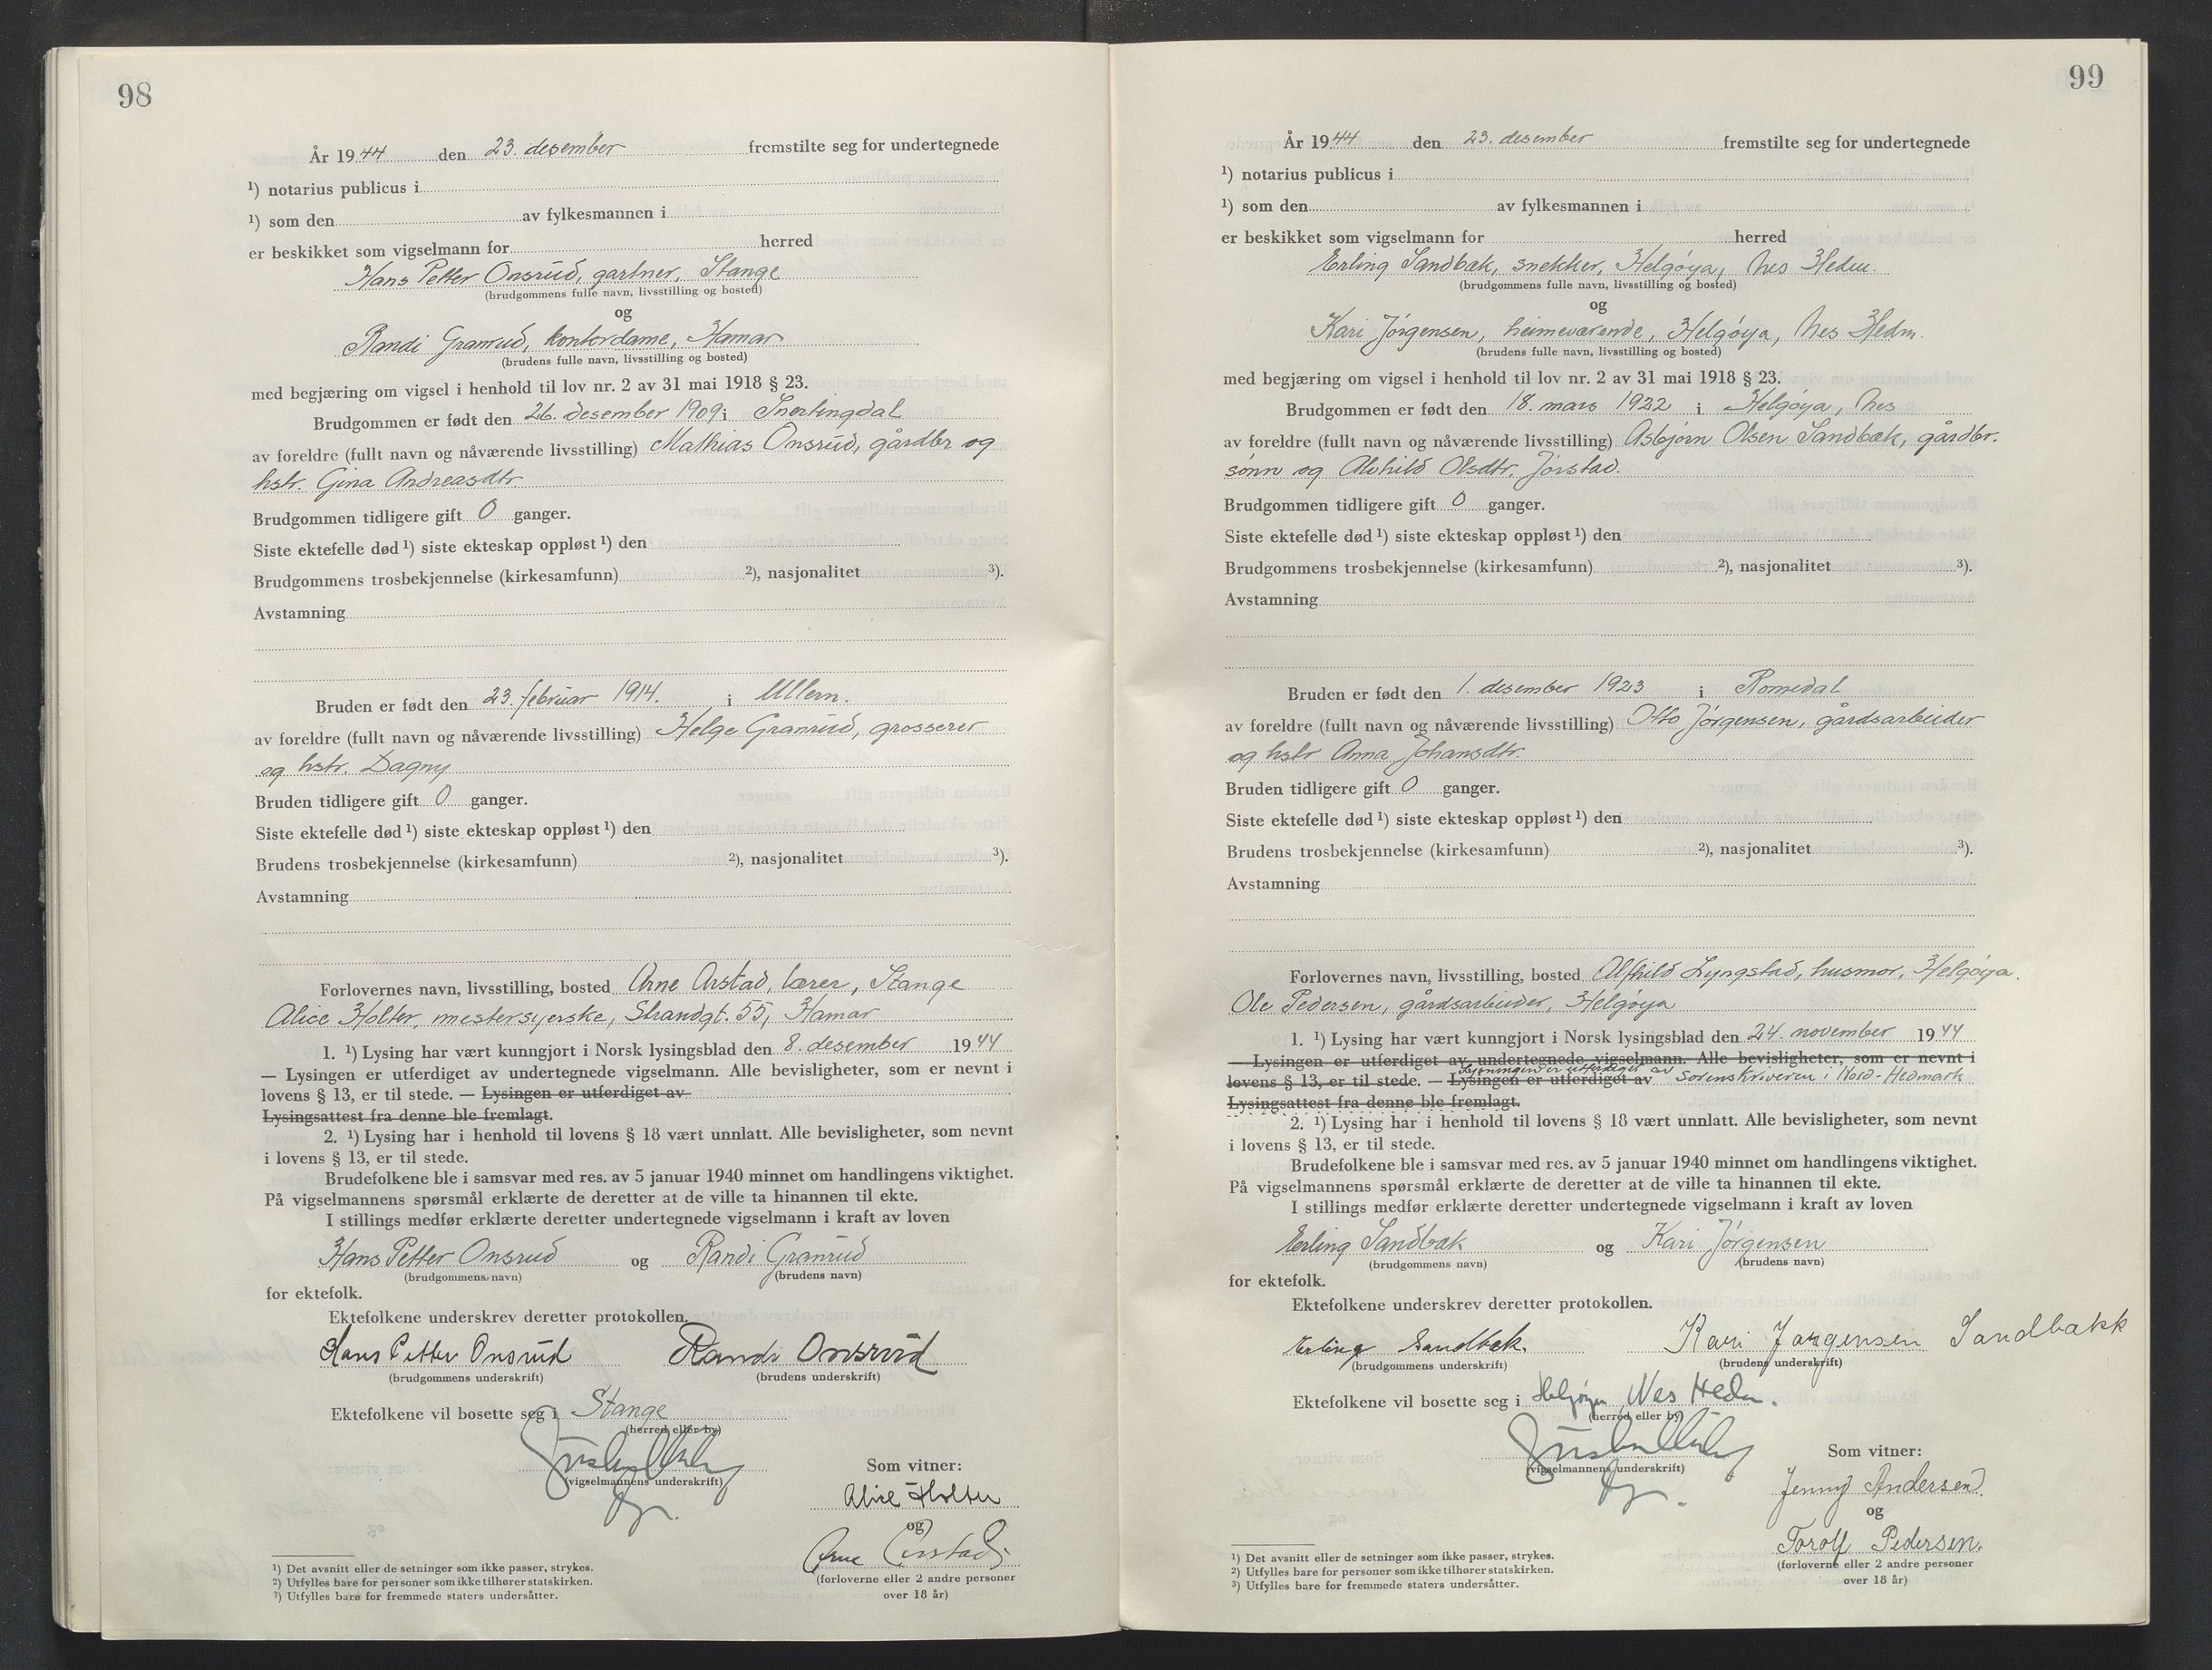 98
År 1944 den 23. desember fremstilte seg for undertegnede
¹) notarius publicus i
¹) som den av fylkesmannen i
er beskikket som vigselmann for herred
Hans Petter Onsrud, gartner, Stange
(brudgommens fulle navn, livsstilling og bosted)
og
Randi Granrud, kontordame, Hamar
(brudens fulle navn, livsstilling og bosted)
med begjæring om vigsel i henhold til lov nr. 2 av 31 mai 1918 § 23.
Brudgommen er født den 26. desember 1909 i Snertingdal
av foreldre (fullt navn og nåværende livsstilling) Mathias Onsrud, gårdbr og
hstr. Gina Andreasdtr.
Brudgommen tidligere gift 0 ganger.
Siste ektefelle død ¹) siste ekteskap oppløst ¹) den
Brudgommens trosbekjennelse (kirkesamfunn) ²), nasjonalitet ³).
Avstamning
Bruden er født den 23. februar 1914. i Ullern.
av foreldre (fullt navn og nåværende livsstilling) Helge Granrud, grosserer
og hstr. Dagny
Bruden tidligere gift 0 ganger.
Siste ektefelle død ¹) siste ekteskap oppløst ¹) den
Brudens trosbekjennelse (kirkesamfunn) ²), nasjonalitet ³).
Avstamning
Forlovernes navn, livsstilling, bosted Arne Arstad, lærer, Stange
Alice Holter, mestersyerske, Strandgt. 55, Hamar
1. ¹) Lysing har vært kunngjort i Norsk lysingsblad den 8. desember 1944
— Lysingen er utferdiget av undertegnede vigselmann. Alle bevisligheter, som er nevnt i
lovens § 13, er til stede. — Lysingen er utferdiget av
Lysingsattest fra denne ble fremlagt.
2. ¹) Lysing har i henhold til lovens § 18 vært unnlatt. Alle bevisligheter, som nevnt
i lovens § 13, er til stede.
Brudefolkene ble i samsvar med res. av 5 januar 1940 minnet om handlingens viktighet.
På vigselmannens spørsmål erklærte de deretter at de ville ta hinannen til ekte.
I stillings medfør erklærte deretter undertegnede vigselmann i kraft av loven
Hans Petter Onsrud og Randi Granrud
(brudgommens navn) (brudens navn)
for ektefolk.
Ektefolkene underskrev deretter protokollen.
Hans Petter Onsrud Randi Onsrud
(brudgommens underskrift) (brudens underskrift)
Ektefolkene vil bosette seg i Stange
(herred eller by)
(vigselmannens underskrift)
Som vitner:
Alice Holter
og
Arne Arstad.
(forloverne eller 2 andre personer
over 18 år)
¹) Det avsnitt eller de setninger som ikke passer, strykes.
²) Utfylles bare for personer som ikke tilhører statskirken.
³) Utfylles bare for fremmede staters undersåtter.
99
År 1944 den 23. desember fremstilte seg for undertegnede
¹) notarius publicus i
¹) som den av fylkesmannen i
er beskikket som vigselmann for herred
Erling Sandbak, snekker, Helgøya, Nes Hedm.
(brudgommens fulle navn, livsstilling og bosted)
og
Kari Jørgensen, heimeværende, Helgøya, Nes Hedm.
(brudens fulle navn, livsstilling og bosted)
med begjæring om vigsel i henhold til lov nr. 2 av 31 mai 1918 § 23.
Brudgommen er født den 18. mars 1922 i Helgøya, Nes
av foreldre (fullt navn og nåværende livsstilling) Asbjørn Olsen Sandbæk, gårdbr.
sønn og Alvhild Olsdtr. Jørstad.
Brudgommen tidligere gift 0 ganger.
Siste ektefelle død ¹) siste ekteskap oppløst ¹) den
Brudgommens trosbekjennelse (kirkesamfunn) ²), nasjonalitet ³).
Avstamning
Bruden er født den 1. desember 1923 i Romedal
av foreldre (fullt navn og nåværende livsstilling) Otto Jørgensen, gårdsarbeider
og hstr Anna Johansdtr.
Bruden tidligere gift 0 ganger.
Siste ektefelle død ¹) siste ekteskap oppløst ¹) den
Brudens trosbekjennelse (kirkesamfunn) ²), nasjonalitet ³).
Avstamning
Forlovernes navn, livsstilling, bosted Alfhild Lyngstad, husmor, Helgøya.
Ole Pedersen, gårdsarbeider, Helgøya
1. ¹) Lysing har vært kunngjort i Norsk lysingsblad den 24. november 1944
— Lysingen er utferdiget av undertegnede vigselmann. Alle bevisligheter, som er nevnt i
Lysningen er utferdiget av
lovens § 13, er til stede. — Lysingen er utferdiget av Sorenskriveren i Nord-Hedmark
Lysingsattest fra denne ble fremlagt.
2. ¹) Lysing har i henhold til lovens § 18 vært unnlatt. Alle bevisligheter, som nevnt
i lovens § 13, er til stede.
Brudefolkene ble i samsvar med res. av 5 januar 1940 minnet om handlingens viktighet.
På vigselmannens spørsmål erklærte de deretter at de ville ta hinannen til ekte.
I stillings medfør erklærte deretter undertegnede vigselmann i kraft av loven
Erling Sandbak og Kari Jørgensen
(brudgommens navn) (brudens navn)
for ektefolk.
Ektefolkene underskrev deretter protokollen.
Erling Sandbak. Kari Jørgensen Sandbakk
(brudgommens underskrift) (brudens underskrift)
Ektefolkene vil bosette seg i Helgøya, Nes Hedm.
(herred eller by)
(vigselmannens underskrift)
Som vitner:
Jenny Andersen.
og
Torolf Pedersen.
(forloverne eller 2 andre personer
over 18 år)
¹) Det avsnitt eller de setninger som ikke passer, strykes.
²) Utfylles bare for personer som ikke tilhører statskirken.
³) Utfylles bare for fremmede staters undersåtter.